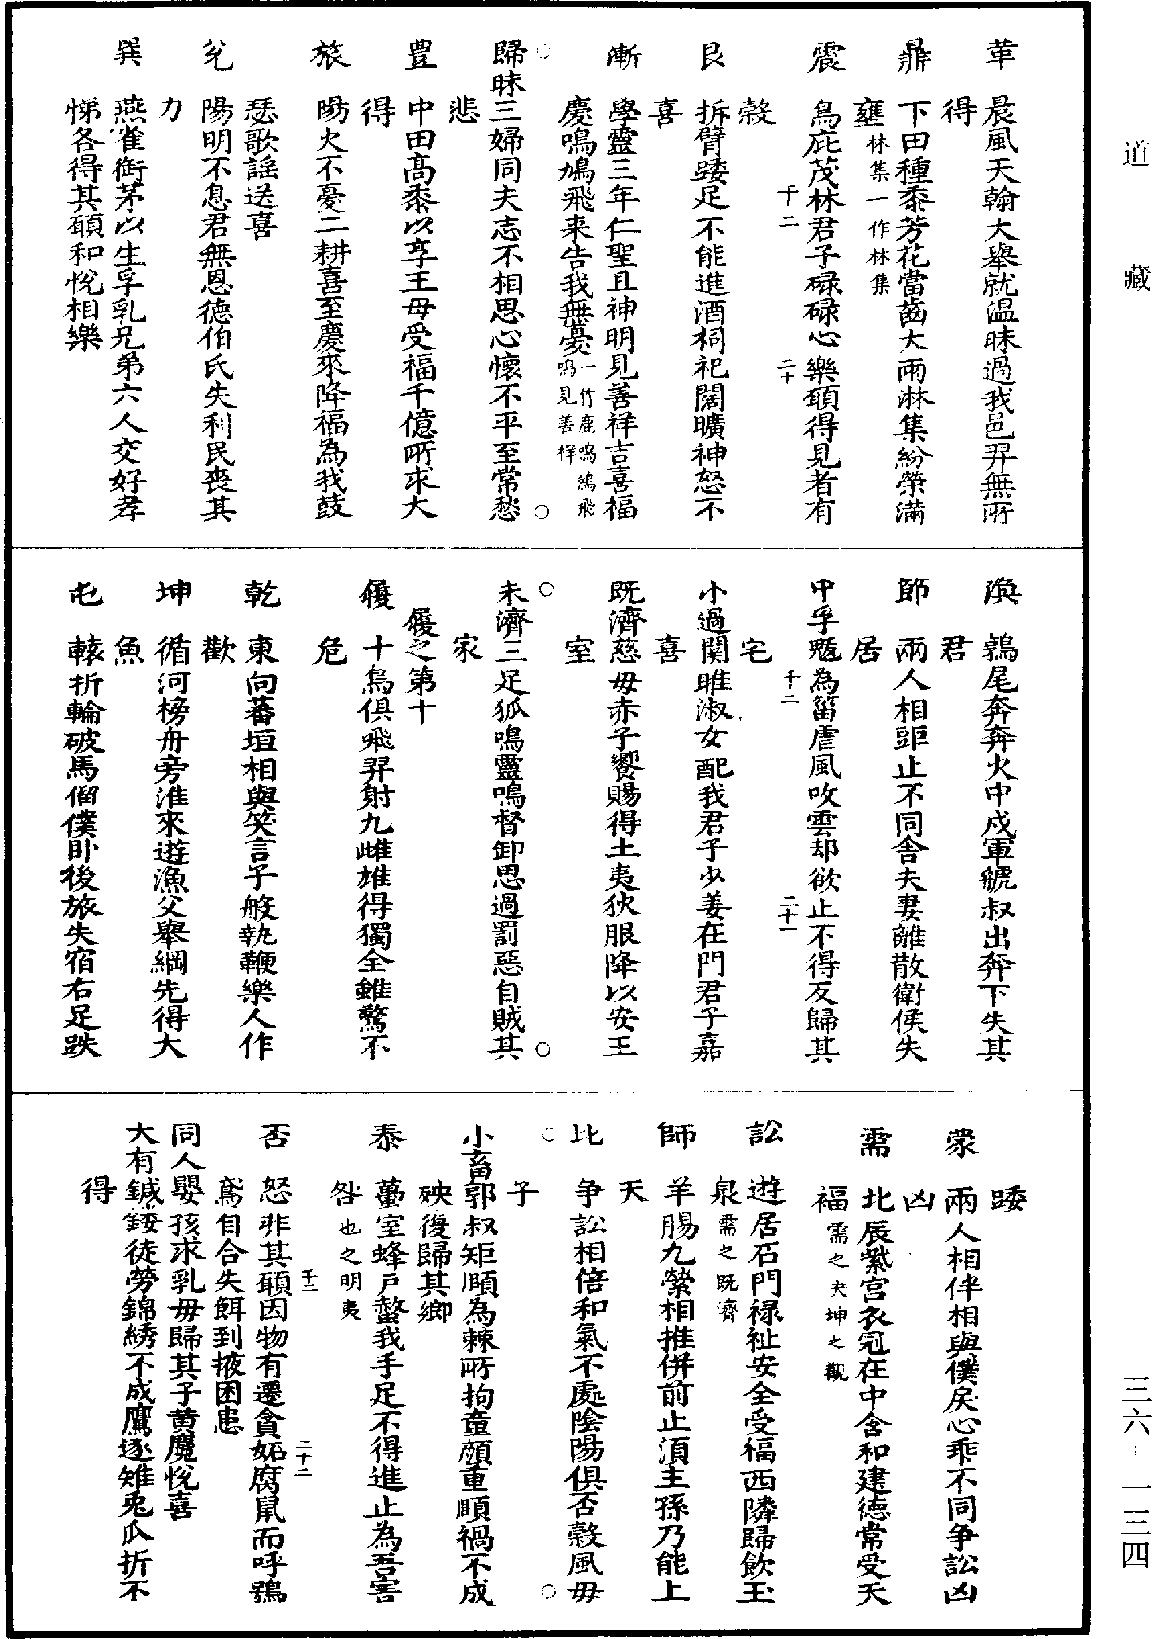 道藏
三六-一三四
革 晨風天翰大舉就溫昧過我邑羿無所
得
鼎 下田種黍芳花當齒大雨淋集紛榮滿
甕林集一作林集
震 烏庇茂林君子碌碌心樂願得見者有
穀
艮 拆臂踒足不能進酒祠祀闊曠神怒不
喜
漸 學靈三年仁聖且神明見善祥吉喜福
慶鳴鳩飛来告我無憂一竹鹿鳴鴻飛鳴見善祥
歸昧三婦同夫志不相思心懷不平至常愁
悲
豊 中田高黍以享王母受福千億所求大
得
旅 陽火不憂二耕喜至慶來降福為我鼓
瑟歌謡送喜
兊 陽明不息君無恩德伯氏失利民喪其
力
巽 燕雀銜茅以生孚乳兄弟六人交好孝
悌各得其願和悅相樂
渙 鶉尾奔奔火中成軍虢叔出奔下失其
君
節 兩人相距止不同舍夫妻離散衛侯失
居
中孚魃為笛虐風吹雲却欲止不得反歸其
宅
小過関睢淑女配我君子少姜在門君子嘉
喜
既濟慈母赤子饗賜得土夷狄服降以安王
室
未濟三足狐鳴靈鳴督卸思過罰惡自賊其
家
履之第十
履 十烏俱飛羿射九雌雄得獨全雖驚不
危
乾 東向蕃垣相與笑言子般執鞭樂人作
歡
坤 循河榜舟旁淮來遊漁父舉網先得大
魚
屯 轅折輪破馬倒僕卧後旅失宿右足跌
踒
蒙 兩人相伴相與僕戾心乖不同争訟凶
凶
需 北辰紫宫衣冠在中含和建德常受天
福需之夬坤之觀
訟 遊居石門禄祉安全受福西隣歸飲玉
泉需之既濟
師 羊腸九縈相推併前止湏主孫乃能上
天
比 争訟相倍和氣不處陰陽俱否穀風母
子
小畜郭叔矩頤為棘所拘童顔重順禍不成
殃復歸其鄉
泰 蠆室蜂戸螫我手足不得進止為吾害
咎也之明夷
否 怒非其願因物有遷貪妬腐鼠而呼鵶
鳶自合失餌到掖困患
同人嬰孩求乳母歸其子黃麑悅喜
大有鍼綫徒勞錦綉不成鷹逐雉兎爪折不
得